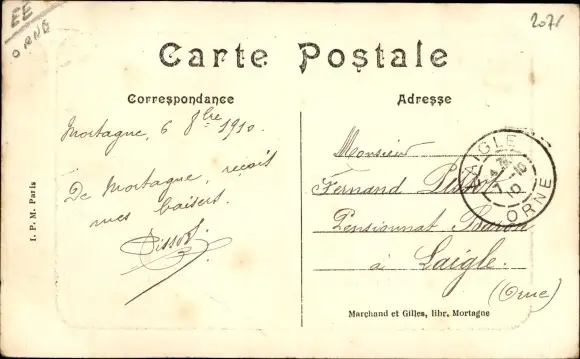 EE
ORNE
207
Carte Postale
Correspondance
Adresse
Mortagne, 6 8bre 1910.
De Mortagne, reçois
mes baisers.
Monsieur
Fernand
Pensionnat Baron
à Laigle.
(Orne)
LAIGLE
7 -10
10
ORNE
I. P. M. Paris
Marchand et Gilles, libr. Mortagne